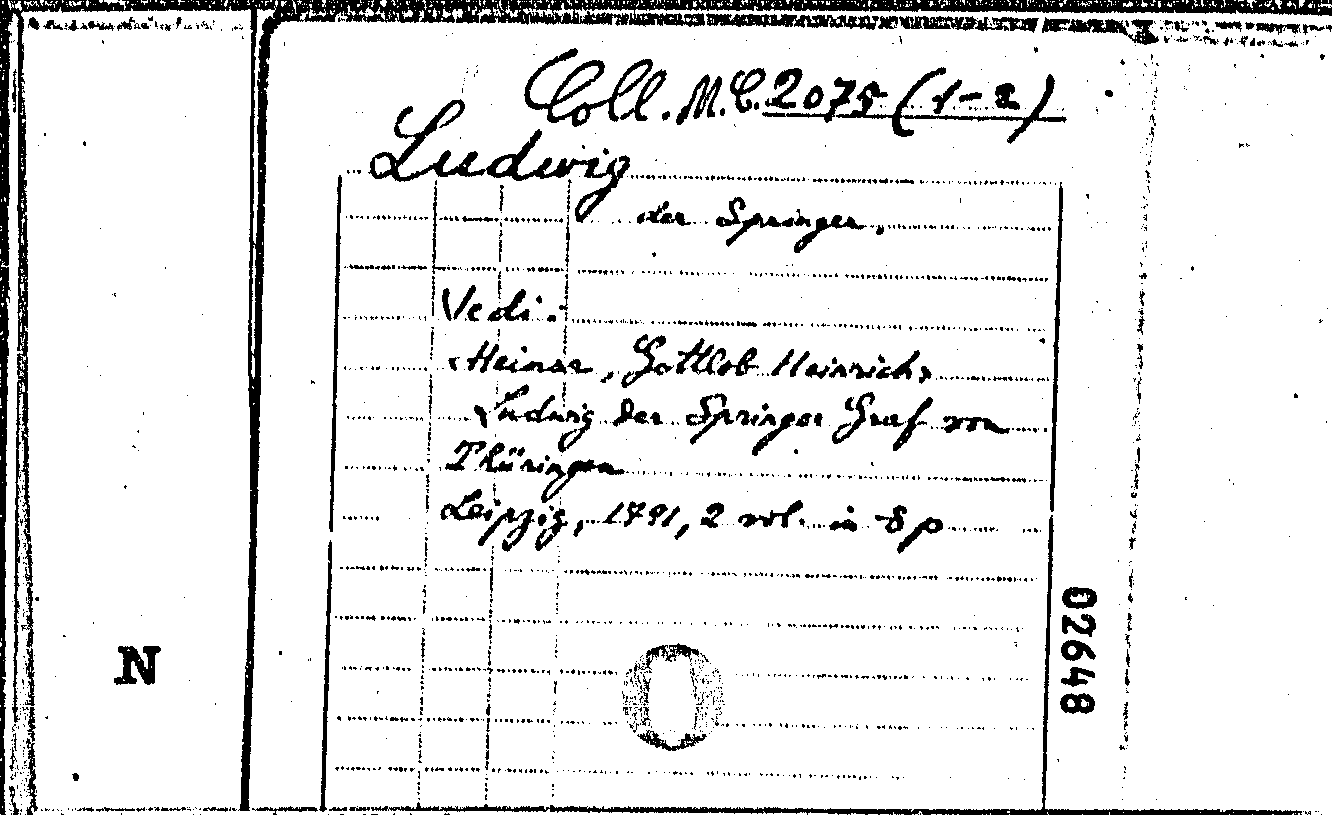 Coll. M.C. 2075 (1-2)
Ludwig
der Springer,
Vedi:
‹Heinse, Gottlob Heinrich›
Ludwig der Springer Graf von
Thüringen
Leipzig, 1791, 2 vol. in 8p
02648
N